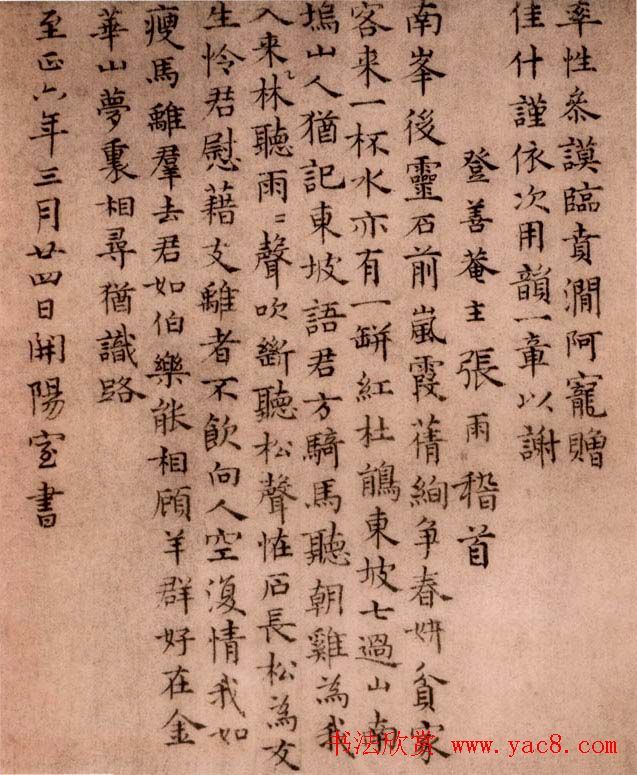 率性叅謨臨賁澗阿寵贈
佳什謹依次用韻一章以謝
登善菴主張雨稽首
南峯後靈石前嵐霞蒨絢爭春妍貧家
客来一杯水亦有一缾紅杜鵑東坡七過山南
塢山人猶記東坡語君方騎馬聽朝雞為我
入来林聽雨〻聲吹斷聽松聲恠石長松為友
生怜君慰藉支離者不飲向人空復情我如
瘦馬離羣去君如伯樂能相顧羊群好在金
華山夢裏相尋猶識路
至正六年三月廿四日開陽室書
书法欣赏 www.yac8.com